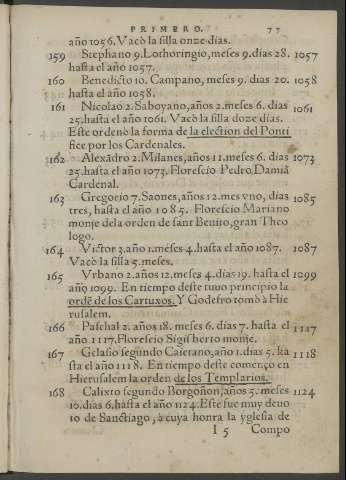 PRIMERO. 77
año 1056. Vacò la silla onze dias.
159 Stephano 9. Lothoringio, meses 9. dias 28. 1057
hasta el año 1057.
160 Benedicto 10. Campano, meses 9. dias 20. 1058
hasta el año 1058.
161 Nicolao 2. Saboyano, años 2. meses 6. dias 1061
25. hasta el año 1061. Vacò la silla doze dias.
Este ordenò la forma de la election del Ponti
fice por los Cardenales.
162 Alexādro 2. Milanes, años 11. meses 6. dias 1073
25. hasta el año 1073. Florescio Pedro Damiā
Cardenal.
163 Gregorio 7. Saones, años 12. mes vno, dias 1085
tres, hasta el año 1085. Florescio Mariano
monje de la orden de sant Benito, gran Theo
logo.
164 Victor 3. año 1. meses 4. hasta el año 1087. 1087
Vacò la silla 5. meses.
165 Vrbano 2. años 12. meses 4. dias 19. hasta el 1099
año 1099. En tiempo deste tuuo principio la
ordē de los Cartuxos. Y Godefro tomò à Hie
rusalem.
166 Paschal 2. años 18. meses 6. dias 7. hasta el 1117
año 1117. Florescio Sigisberto monje.
167 Gelasio segundo Caietano, año 1. dias 5. ha 1118
sta el año 1118. En tiempo deste començo en
Hierusalem la orden de los Templarios.
168 Calixto segundo Borgoñon, años 5. meses 1124
10. dias 6. hasta el año 1124. Este fue muy deuo
to de Sanctiago, à cuya honra la yglesia de
I 5 Compo